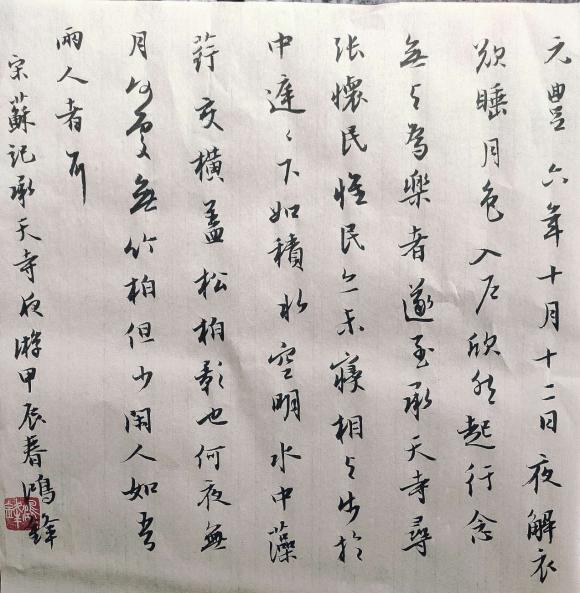 元豐六年十月十二日夜解衣
欲睡月色入戶欣然起行念
無与為樂者遂至承天寺尋
張懷民懷民亦未寢相与步於
中庭〻下如積水空明水中藻
荇交橫蓋松柏影也何夜無
月何處無竹柏但少閑人如吾
兩人者耳
宋蘇記承天寺夜游甲辰春鴻鋒